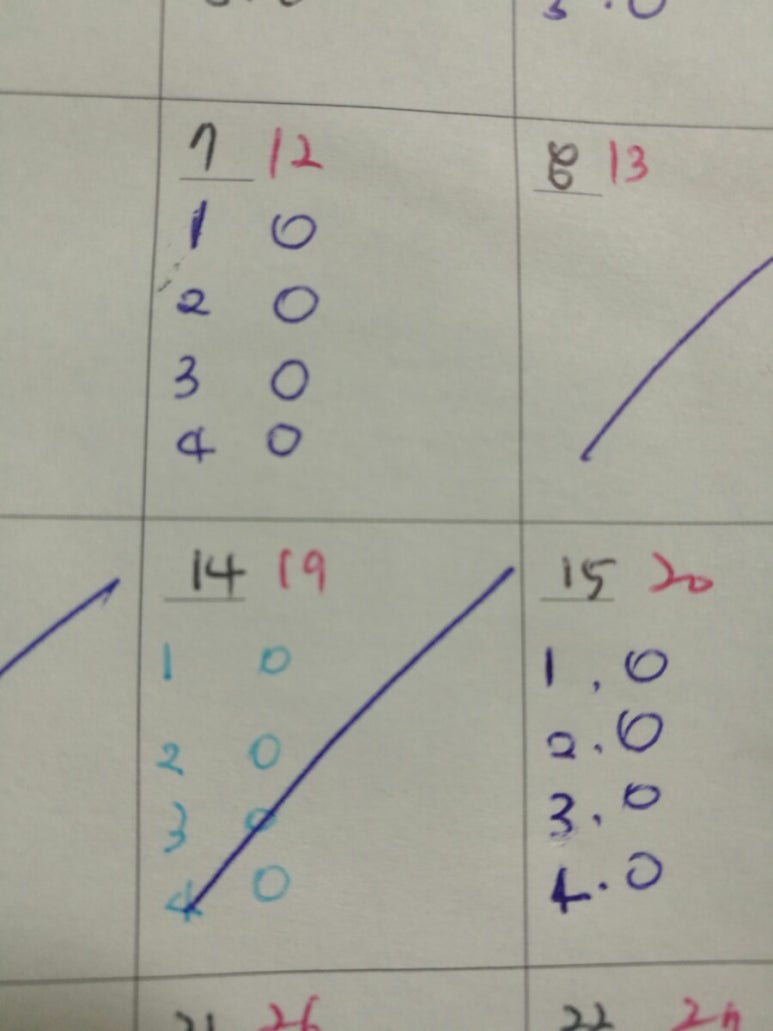 7 12
1 0
2 0
3 0
4 0
8 13
14 19
1 0
2 0
3 0
4 0
15 20
1 . 0
2 . 0
3 . 0
4 . 0
21 26
22